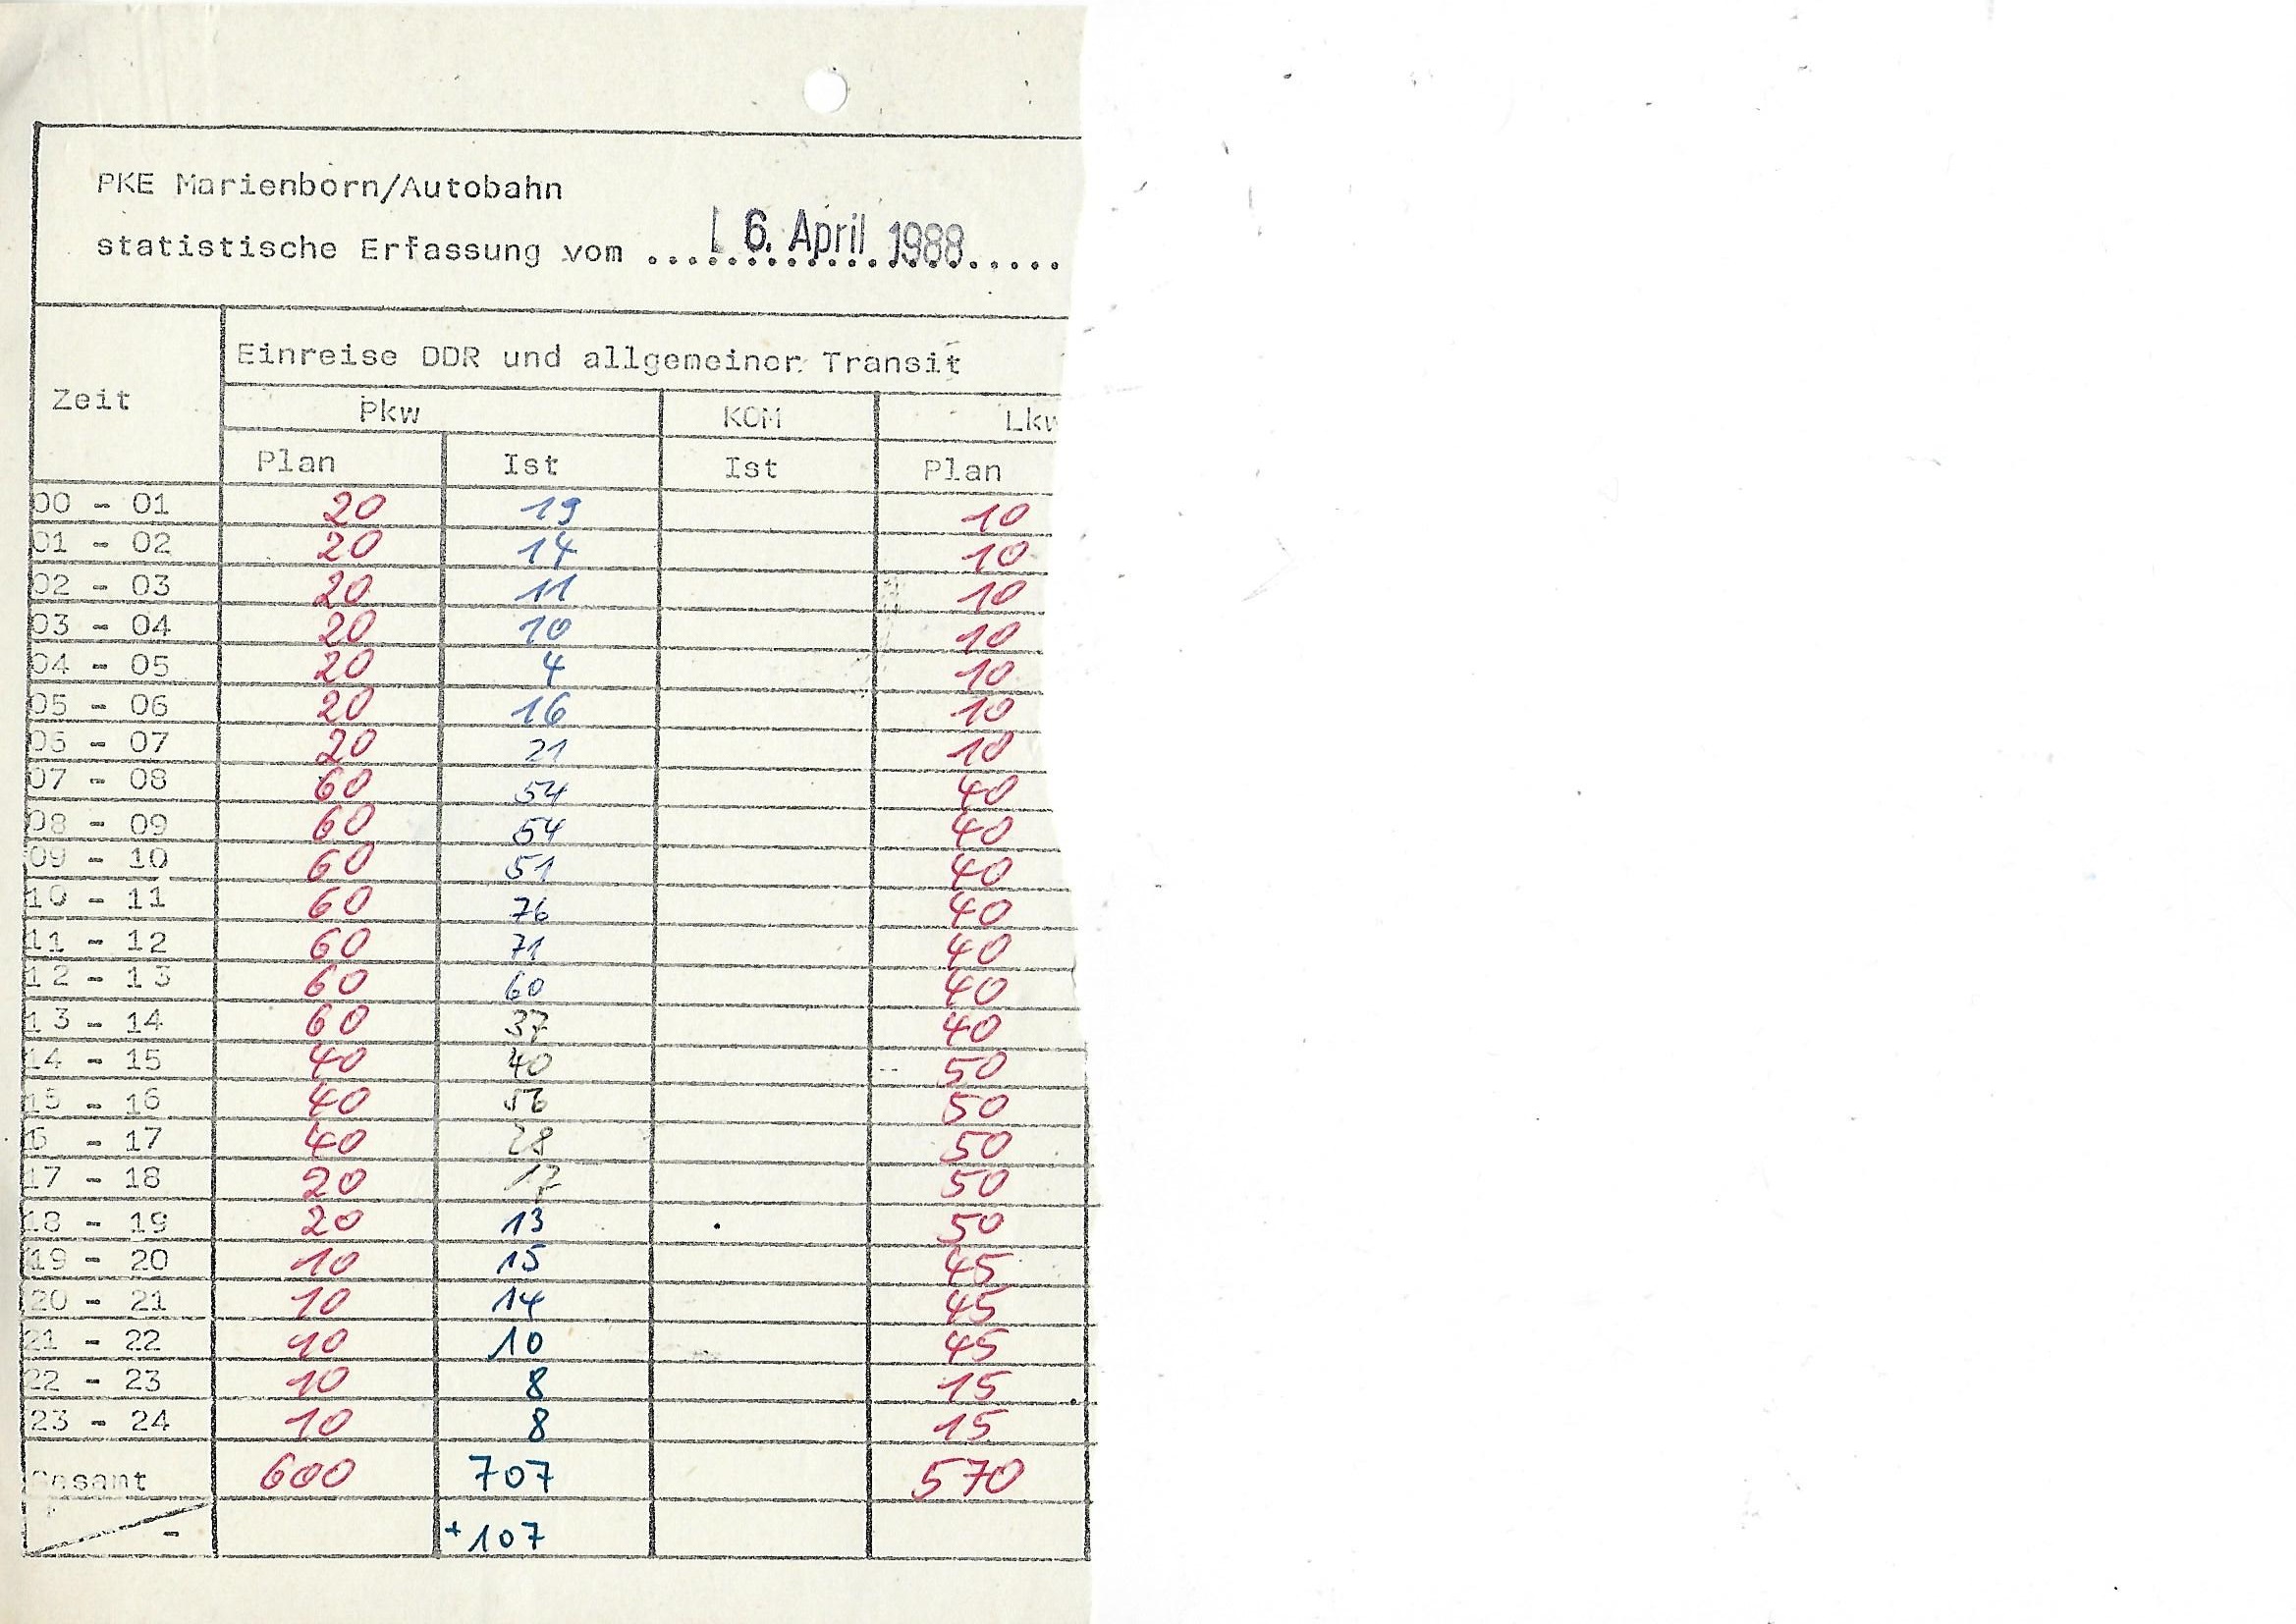 PKE Marienborn/Autobahn
statistische Erfassung vom 6. April 1988
Einreise DDR und allgemeiner Transit
Zeit Pkw KOM Lkw
Plan Ist Ist Plan
00 - 01 20 19 10
01 - 02 20 14 10
02 - 03 20 11 10
03 - 04 20 10 10
04 - 05 20 4 10
05 - 06 20 16 10
06 - 07 20 21 10
07 - 08 60 54 40
08 - 09 60 54 40
09 - 10 60 51 40
10 - 11 60 76 40
11 - 12 60 71 40
12 - 13 60 60 40
13 - 14 60 37 40
14 - 15 40 40 50
15 - 16 40 50
6 - 17 40 28 50
17 - 18 20 17 50
18 - 19 20 13 50
19 - 20 10 15 45
20 - 21 10 14 45
21 - 22 10 10 45
22 - 23 10 8 15
23 - 24 10 8 15
Gesamt 600 707 570
- +107